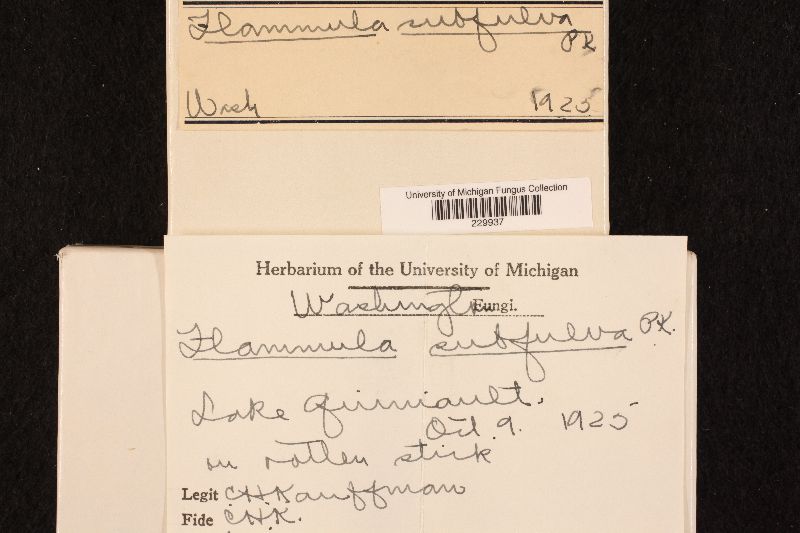 Flammula subfulva
PK
Wash 1925
University of Michigan Fungus Collection
229937
Herbarium of the University of Michigan
Washington Fungi.
Flammula subfulva PK.
Lake Quiniault.
Oct. 9. 1925
on rotten stick
Legit C.H.Kauffman
Fide C.H.K.